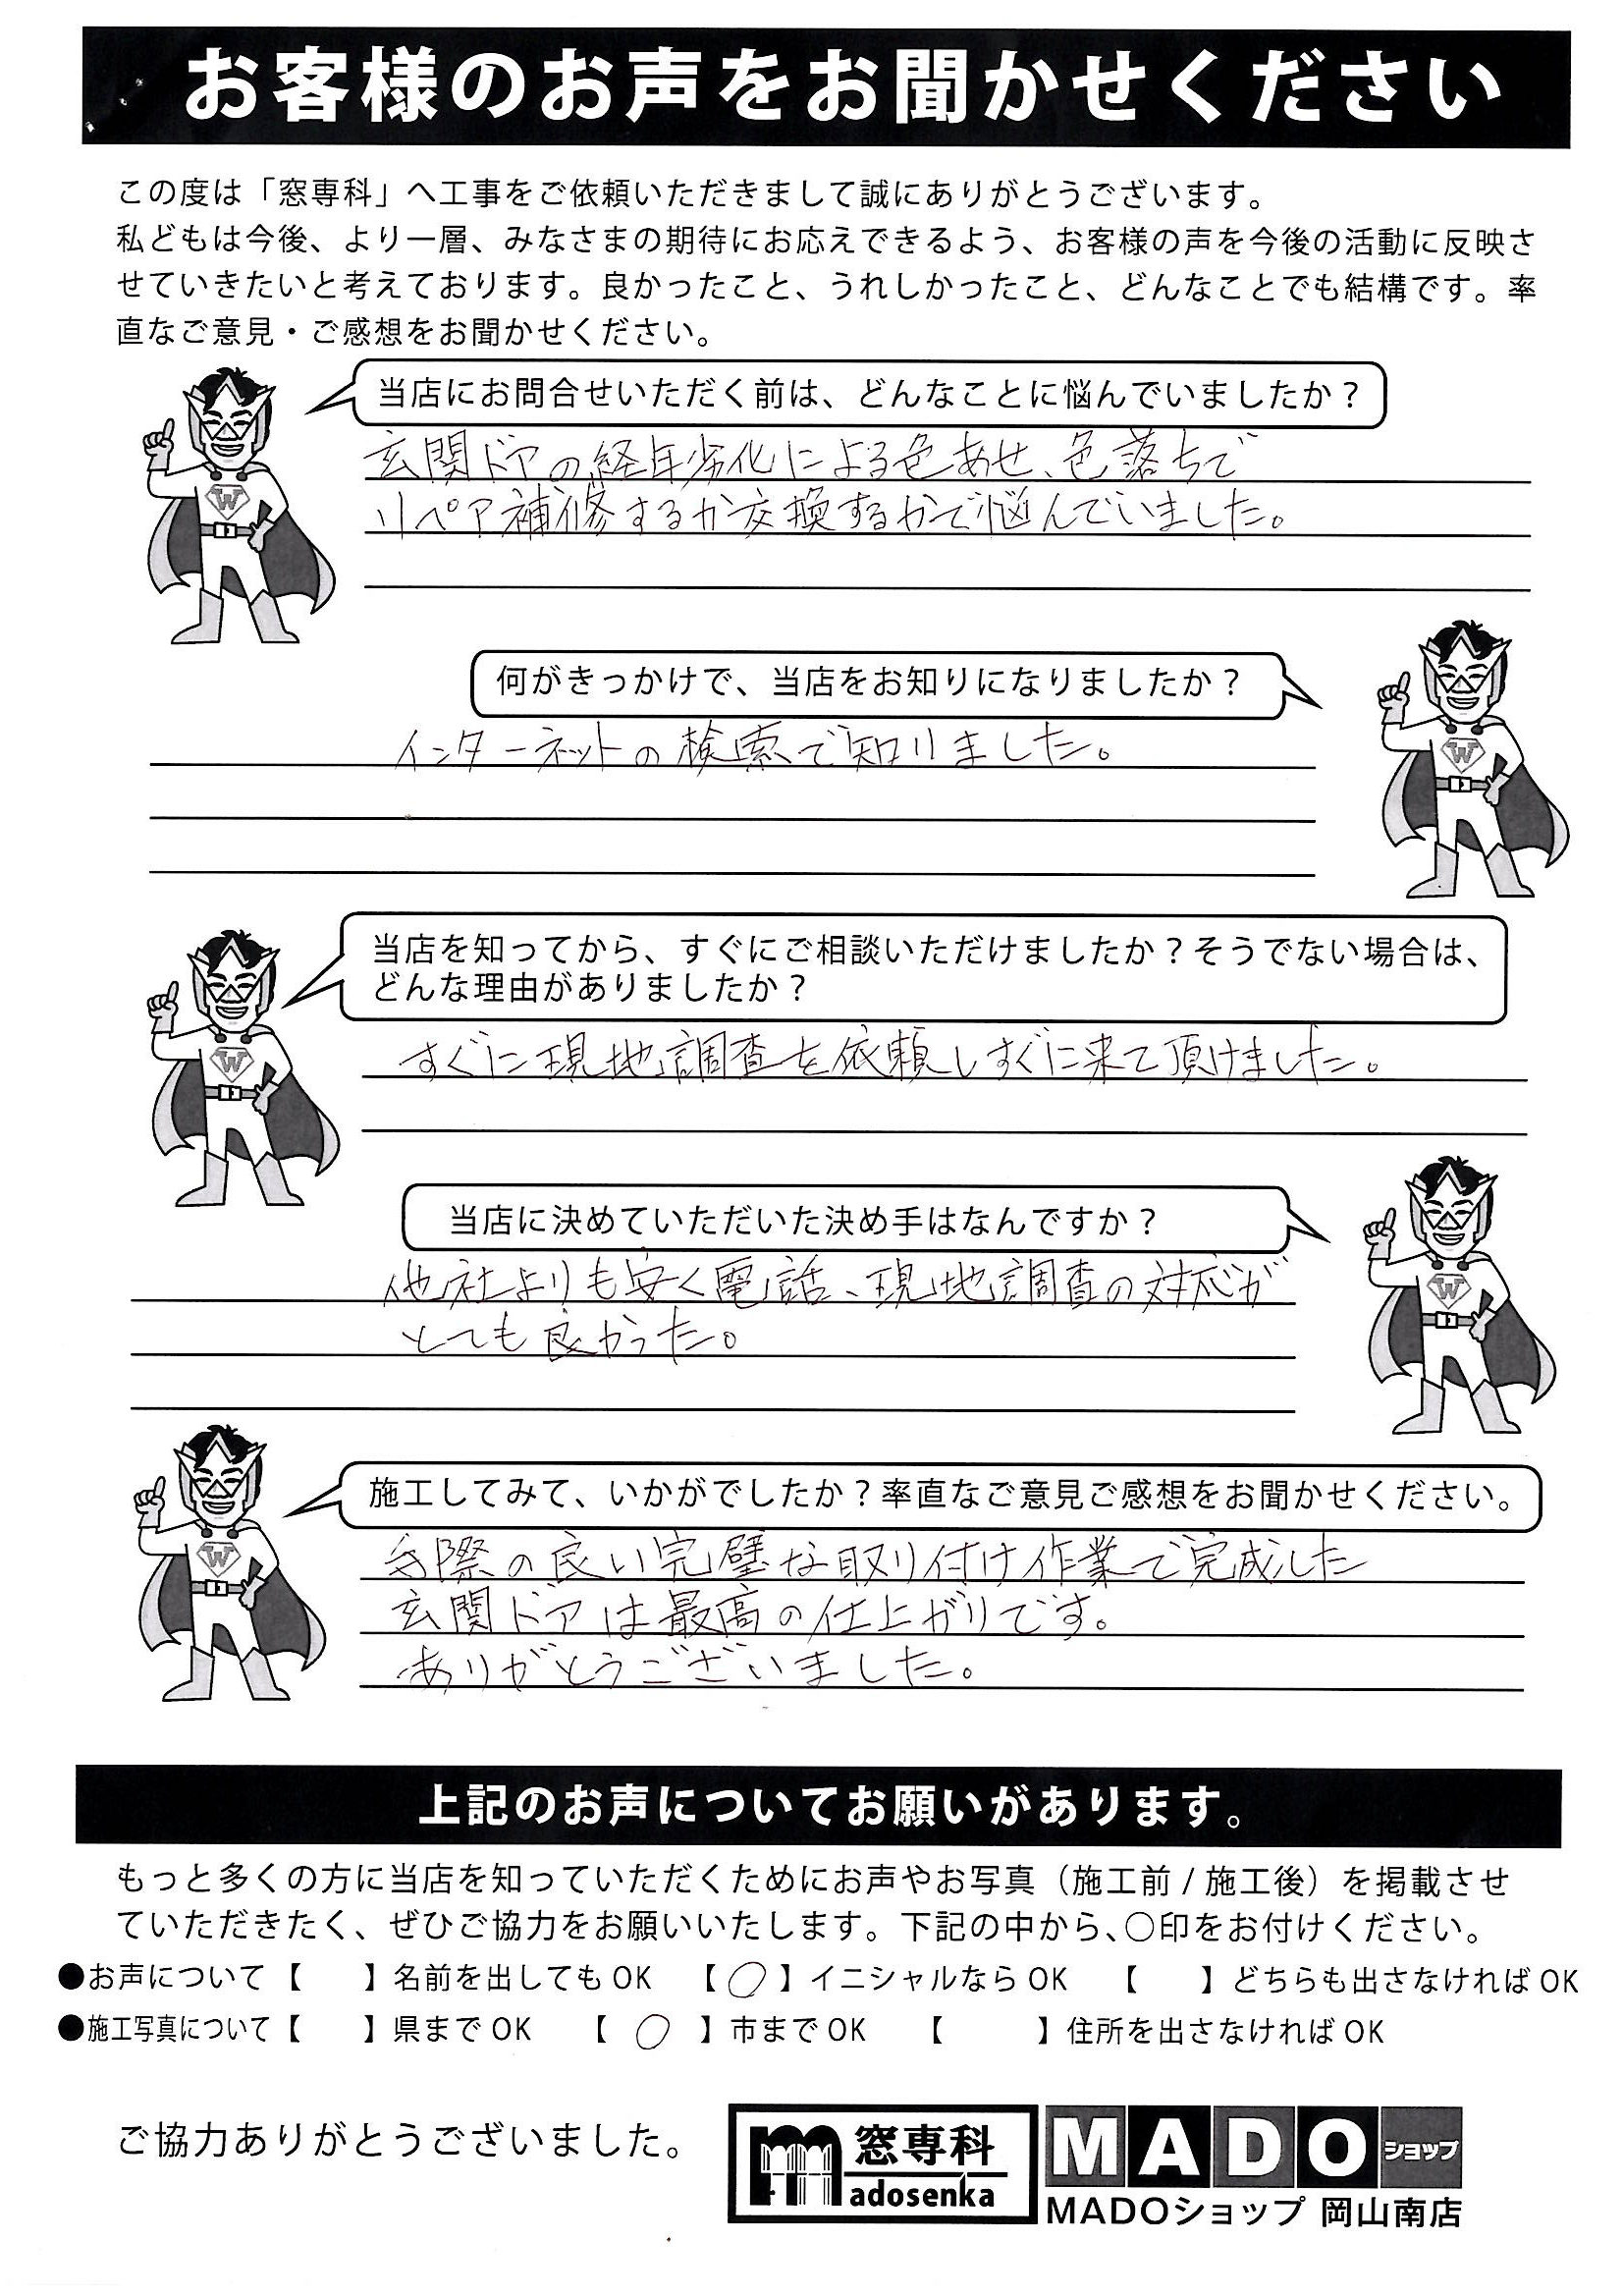 お客様のお声をお聞かせください
この度は「窓専科」へ工事をご依頼いただきまして誠にありがとうございます。
私どもは今後、より一層、みなさまの期待にお応えできるよう、お客様の声を今後の活動に反映さ
せていきたいと考えております。良かったこと、うれしかったこと、どんなことでも結構です。率
直なご意見・ご感想をお聞かせください。
当店にお問合せいただく前は、どんなことに悩んでいましたか？
玄関ドアの経年劣化による色あせ、色落ちで
リペア補修するか交換するかで悩んでいました。
何がきっかけで、当店をお知りになりましたか？
インターネットの検索で知りました。
当店を知ってから、すぐにご相談いただけましたか？そうでない場合は、
どんな理由がありましたか？
すぐに現地調査を依頼しすぐに来て頂けました。
当店に決めていただいた決め手はなんですか？
他社よりも安く電話、現地調査の対応が
とても良かった。
施工してみて、いかがでしたか？率直なご意見ご感想をお聞かせください。
手際の良い完璧な取り付け作業で完成した
玄関ドアは最高の仕上がりです。
ありがとうございました。
上記のお声についてお願いがあります。
もっと多くの方に当店を知っていただくためにお声やお写真（施工前 / 施工後）を掲載させ
ていただきたく、ぜひご協力をお願いいたします。下記の中から、○印をお付けください。
●お声について【　　】名前を出してもOK　【○】イニシャルならOK　【　　】どちらも出さなければOK
●施工写真について【　　】県までOK　【○】市までOK　【　　】住所を出さなければOK
ご協力ありがとうございました。
窓専科
madosenka
MADOショップ
MADOショップ 岡山南店